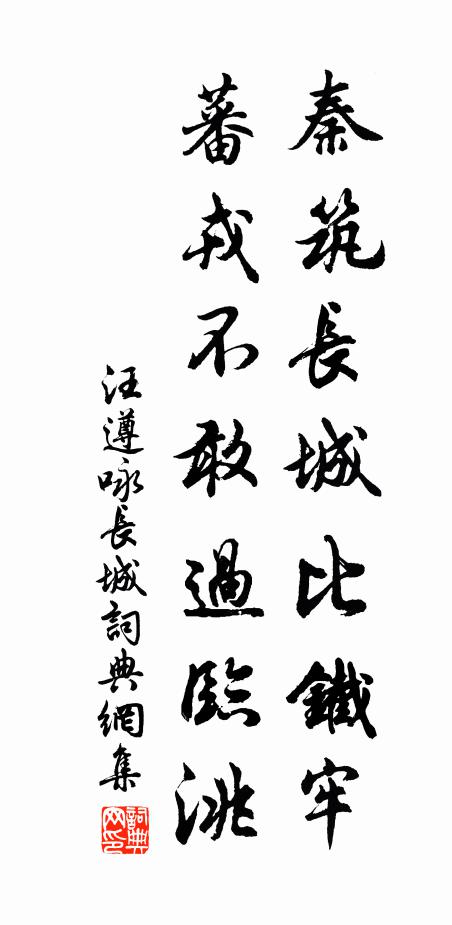 秦筑長城比鐵牢
蕃戎不敢過臨洮
汪遵咏長城詞典網集
詞典
网印